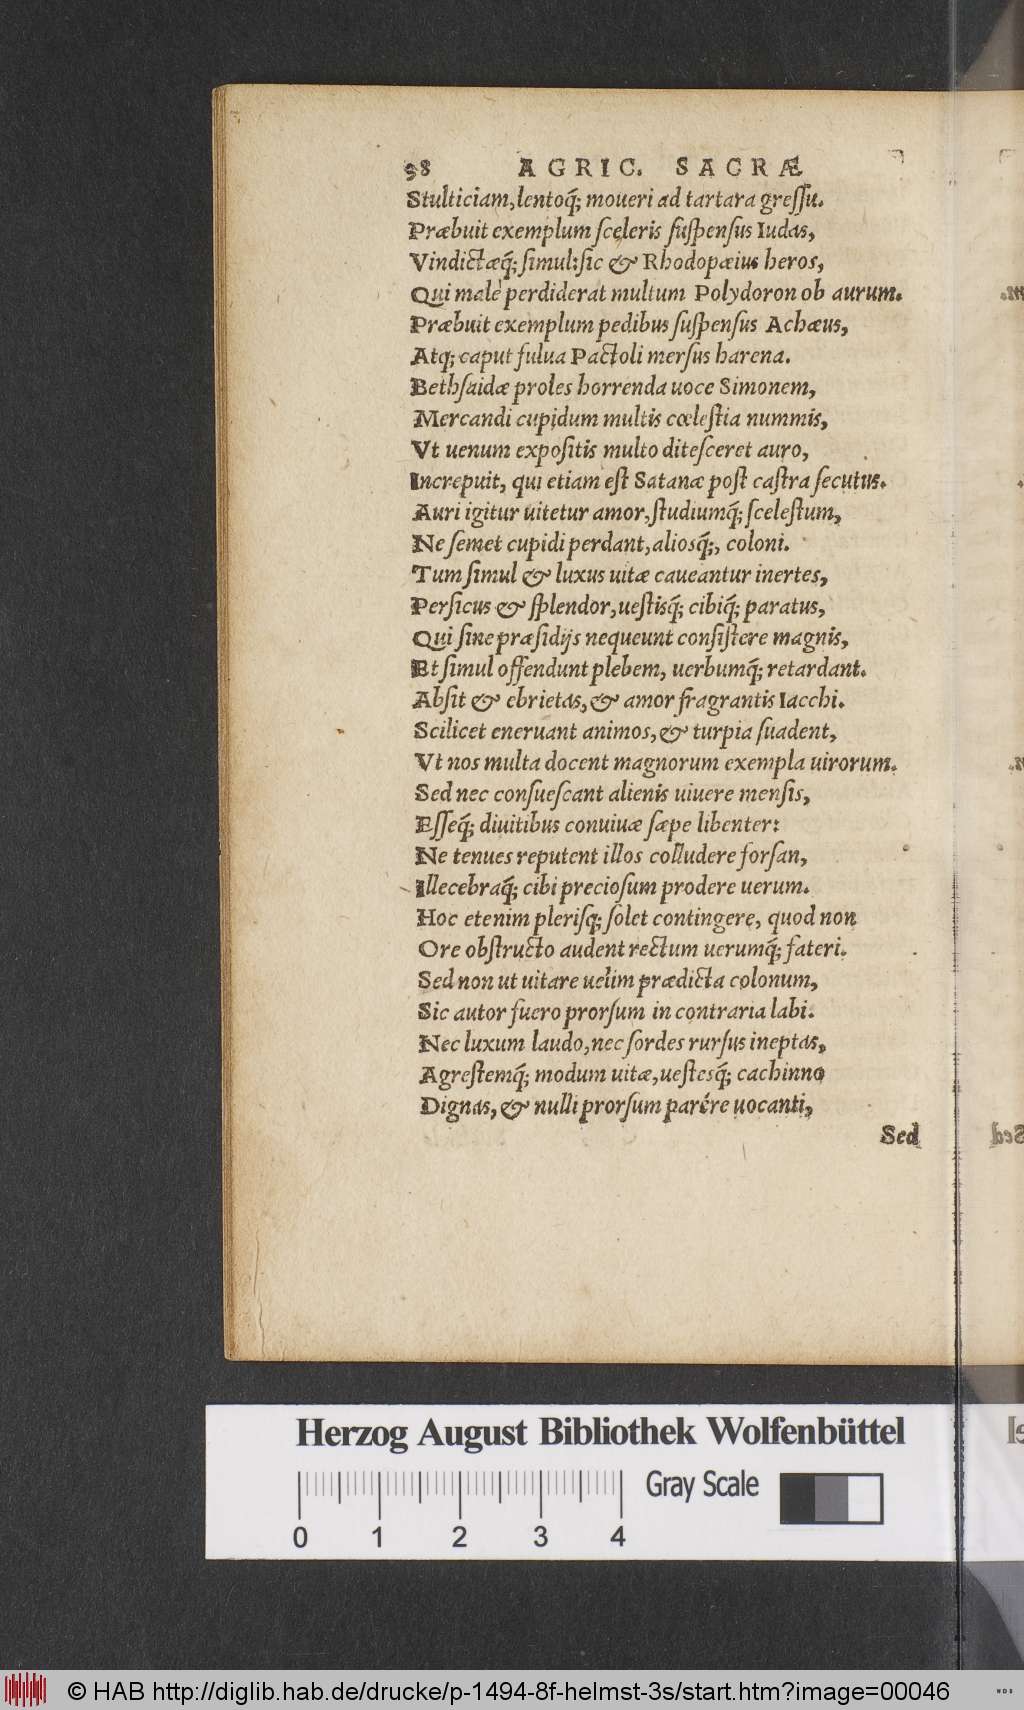 98 AGRIC. SACRÆ
Stulticiam, lentoq́; moueri ad tartara greſſu.
Præbuit exemplum ſceleris ſuſpenſus Iudas,
Vindictæq́; ſimul: ſic & Rhodopæius heros,
Qui malè perdiderat multum Polydoron ob aurum.
Præbuit exemplum pedibus ſuſpenſus Achæus,
Atq; caput fulua Pactoli merſus harena.
Bethſaidæ proles horrenda uoce Simonem,
Mercandi cupidum multis cœleſtia nummis,
Vt uenum expoſitis multo diteſceret auro,
Increpuit, qui etiam eſt Satanæ poſt caſtra ſecutus.
Auri igitur uitetur amor, ſtudiumq́; ſceleſtum,
Ne ſemet cupidi perdant, aliosq́;, coloni.
Tum ſimul & luxus uitæ caueantur inertes,
Perſicus & ſplendor, ueſtisq́; cibiq́; paratus,
Qui ſine præſidijs nequeunt conſiſtere magnis,
Et ſimul offendunt plebem, uerbumq́; retardant.
Abſit & ebrietas, & amor fragrantis Iacchi.
Scilicet eneruant animos, & turpia ſuadent,
Vt nos multa docent magnorum exempla uirorum.
Sed nec conſueſcant alienis uiuere menſis,
Eſſeq́; diuitibus conuiuæ ſæpe libenter:
Ne tenues reputent illos colludere forſan,
Illecebraq́; cibi precioſum prodere uerum.
Hoc etenim pleriſq; ſolet contingere, quod non
Ore obſtructo audent rectum uerumq́; fateri.
Sed non ut uitare uelim prædicta colonum,
Sic autor fuero prorſum in contraria labi.
Nec luxum laudo, nec ſordes rurſus ineptas,
Agreſtemq́; modum uitæ, ueſtesq́; cachinno
Dignas, & nulli prorſum parére uocanti,
Sed
Herzog August Bibliothek Wolfenbüttel
Gray Scale
0 1 2 3 4
© HAB http://diglib.hab.de/drucke/p-1494-8f-helmst-3s/start.htm?image=00046